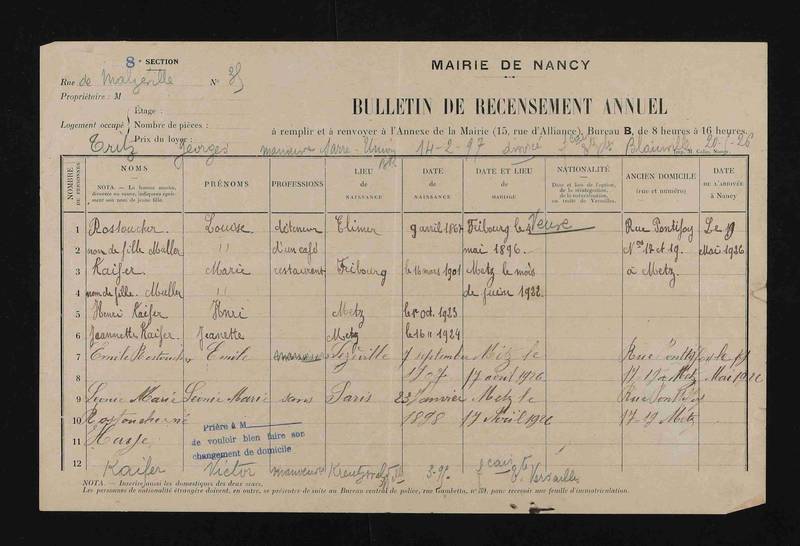 8e SECTION
MAIRIE DE NANCY
Rue de Malzéville N° 35
Propriétaire : M
BULLETIN DE RECENSEMENT ANNUEL
Logement occupé
Étage :
Nombre de pièces :
Prix du loyer :
à remplir et à renvoyer à l'Annexe de la Mairie (15, rue d'Alliance), Bureau B, de 8 heures à 16 heures.
Tritz Georges manœuvre 14-2-97 divorcé Blainville 20-5-26
NOMBRE DE PERSONNES
NOMS
NOTA. — La femme mariée, divorcée ou veuve, indiquera également son nom de jeune fille.
PRÉNOMS
PROFESSIONS
LIEU de NAISSANCE
DATE de NAISSANCE
DATE ET LIEU de MARIAGE
NATIONALITÉ
Date et lieu de l'option, de la réintégration, de la naturalisation, ou traité de Versailles.
ANCIEN DOMICILE (rue et numéro)
DATE DE L'ARRIVÉE à Nancy
1 Rostoucher Louise Elimer 9 avril 1867 Fribourg le Veuve Rue Pontifoy Le 19
2 nom de fille Muller " d'un café mai 1896. Nos 17 et 19. Mai 1926
3 Kaifer Marie restaurent Fribourg le 16 mars 1901 Metz le mois à Metz.
4 nom de fille. Muller " de juin 1922
5 Henri Kaifer Henri Metz le 1er oct. 1923
6 Jeannette Kaifer. Jeanette Metz le 16 11 1924
7 Emile Rostoucher Emile manœuvre 7 septembre Metz le Rue
8 17 août 1926 17-19 à Metz Mai 1926
9 Léonie Marie Léonie Marie sans Paris 23 Janvier Metz le Rue
10 Rostoucher né 1898 17 Avril 1926 17-19 Metz
11 Hasje
Prière à M
de vouloir bien faire son
changement de domicile
12 Kaifer Victor manœuvre Versailles
NOTA. — Inscrire aussi les domestiques des deux sexes.
Les personnes de nationalité étrangère doivent, en outre, se présenter de suite au Bureau central de police, rue Gambetta, n° 39, pour recevoir une feuille d'immatriculation.